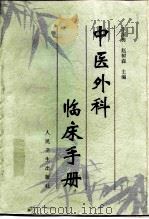 赵树森 主编
中医外科
临床手册
人民卫生出版社